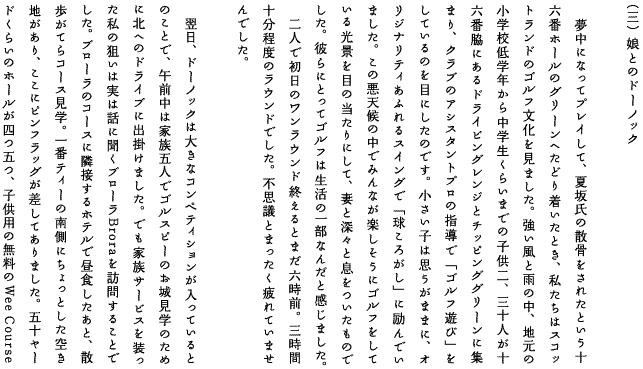 （三）娘とのドーノック
夢中になってプレイして、夏坂氏の散骨をされたという十
六番ホールのグリーンへたどり着いたとき、私たちはスコッ
トランドのゴルフ文化を見ました。強い風と雨の中、地元の
小学校低学年から中学生くらいまでの子供二、三十人が十
六番脇にあるドライビングレンジとチッピンググリーンに集
まり、クラブのアシスタントプロの指導で「ゴルフ遊び」を
しているのを目にしたのです。小さい子は思うがままに、オ
リジナリティあふれるスイングで「球ころがし」に励んでい
ました。この悪天候の中でみんなが楽しそうにゴルフをして
いる光景を目の当たりにして、妻と深々と息をついたもので
した。彼らにとってゴルフは生活の一部なんだと感じました。
二人で初日のワンラウンド終えるとまだ六時前。三時間
十分程度のラウンドでした。不思議とまったく疲れていませ
んでした。
翌日、ドーノックは大きなコンペティションが入っていると
のことで、午前中は家族五人でゴルスピーのお城見学のため
に北へのドライブに出掛けました。でも家族サービスを装っ
た私の狙いは実は話に聞くブローラBroraを訪問することで
した。ブローラのコースに隣接するホテルで昼食したあと、散
歩がてらコース見学。一番ティーの南側にちょっとした空き
地があり、ここにピンフラッグが差してありました。五十ヤー
ドくらいのホールが四つ五つ、子供用の無料のWee Course